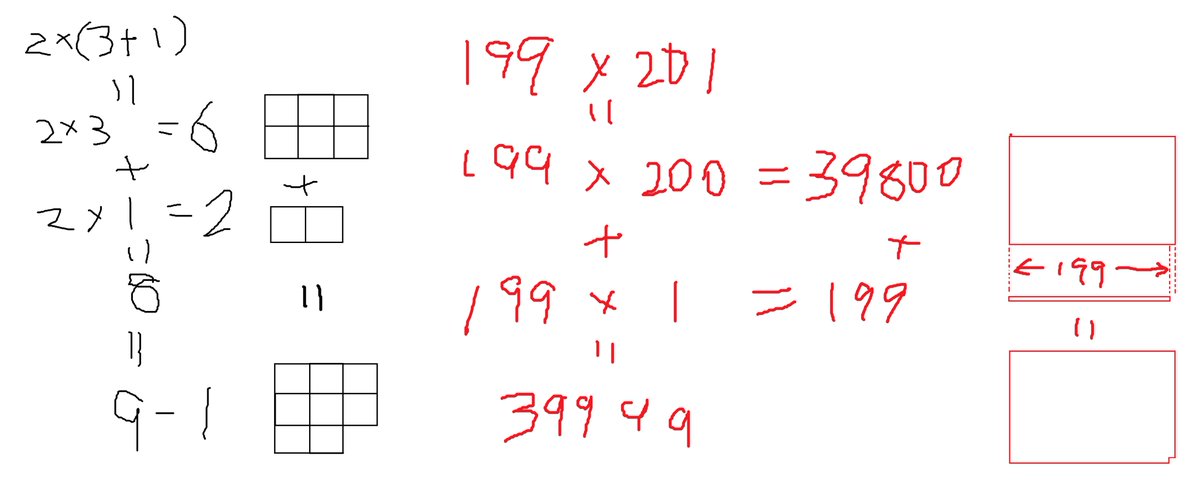 2×(3+1)
||
2×3 = 6
+
2×1 = 2
||
8
||
9-1
+
||
199 × 201
||
199 × 200 = 39800
+ +
199 × 1 = 199
||
39999
←199→
||